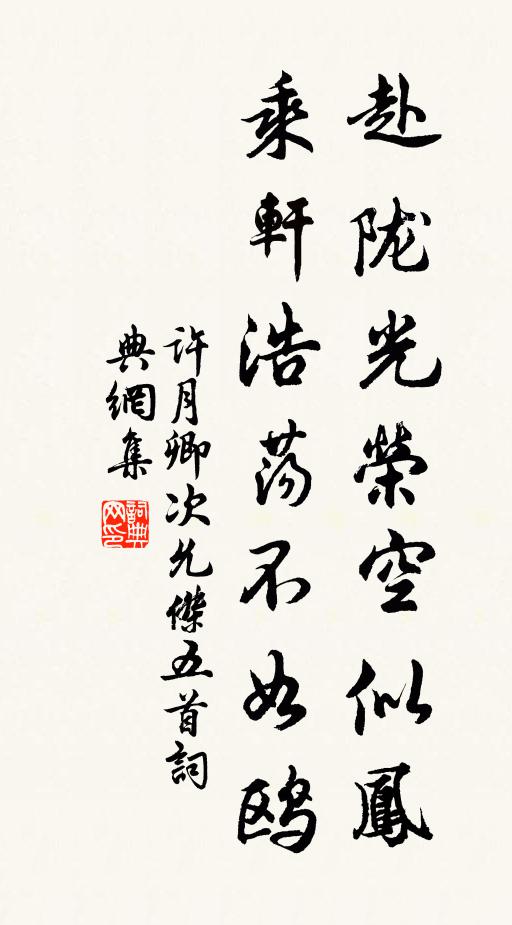 赴陇光榮空似鳳
乘軒浩荡不如鸥
許月卿次允傑五首詞
典網集
詞典
网印